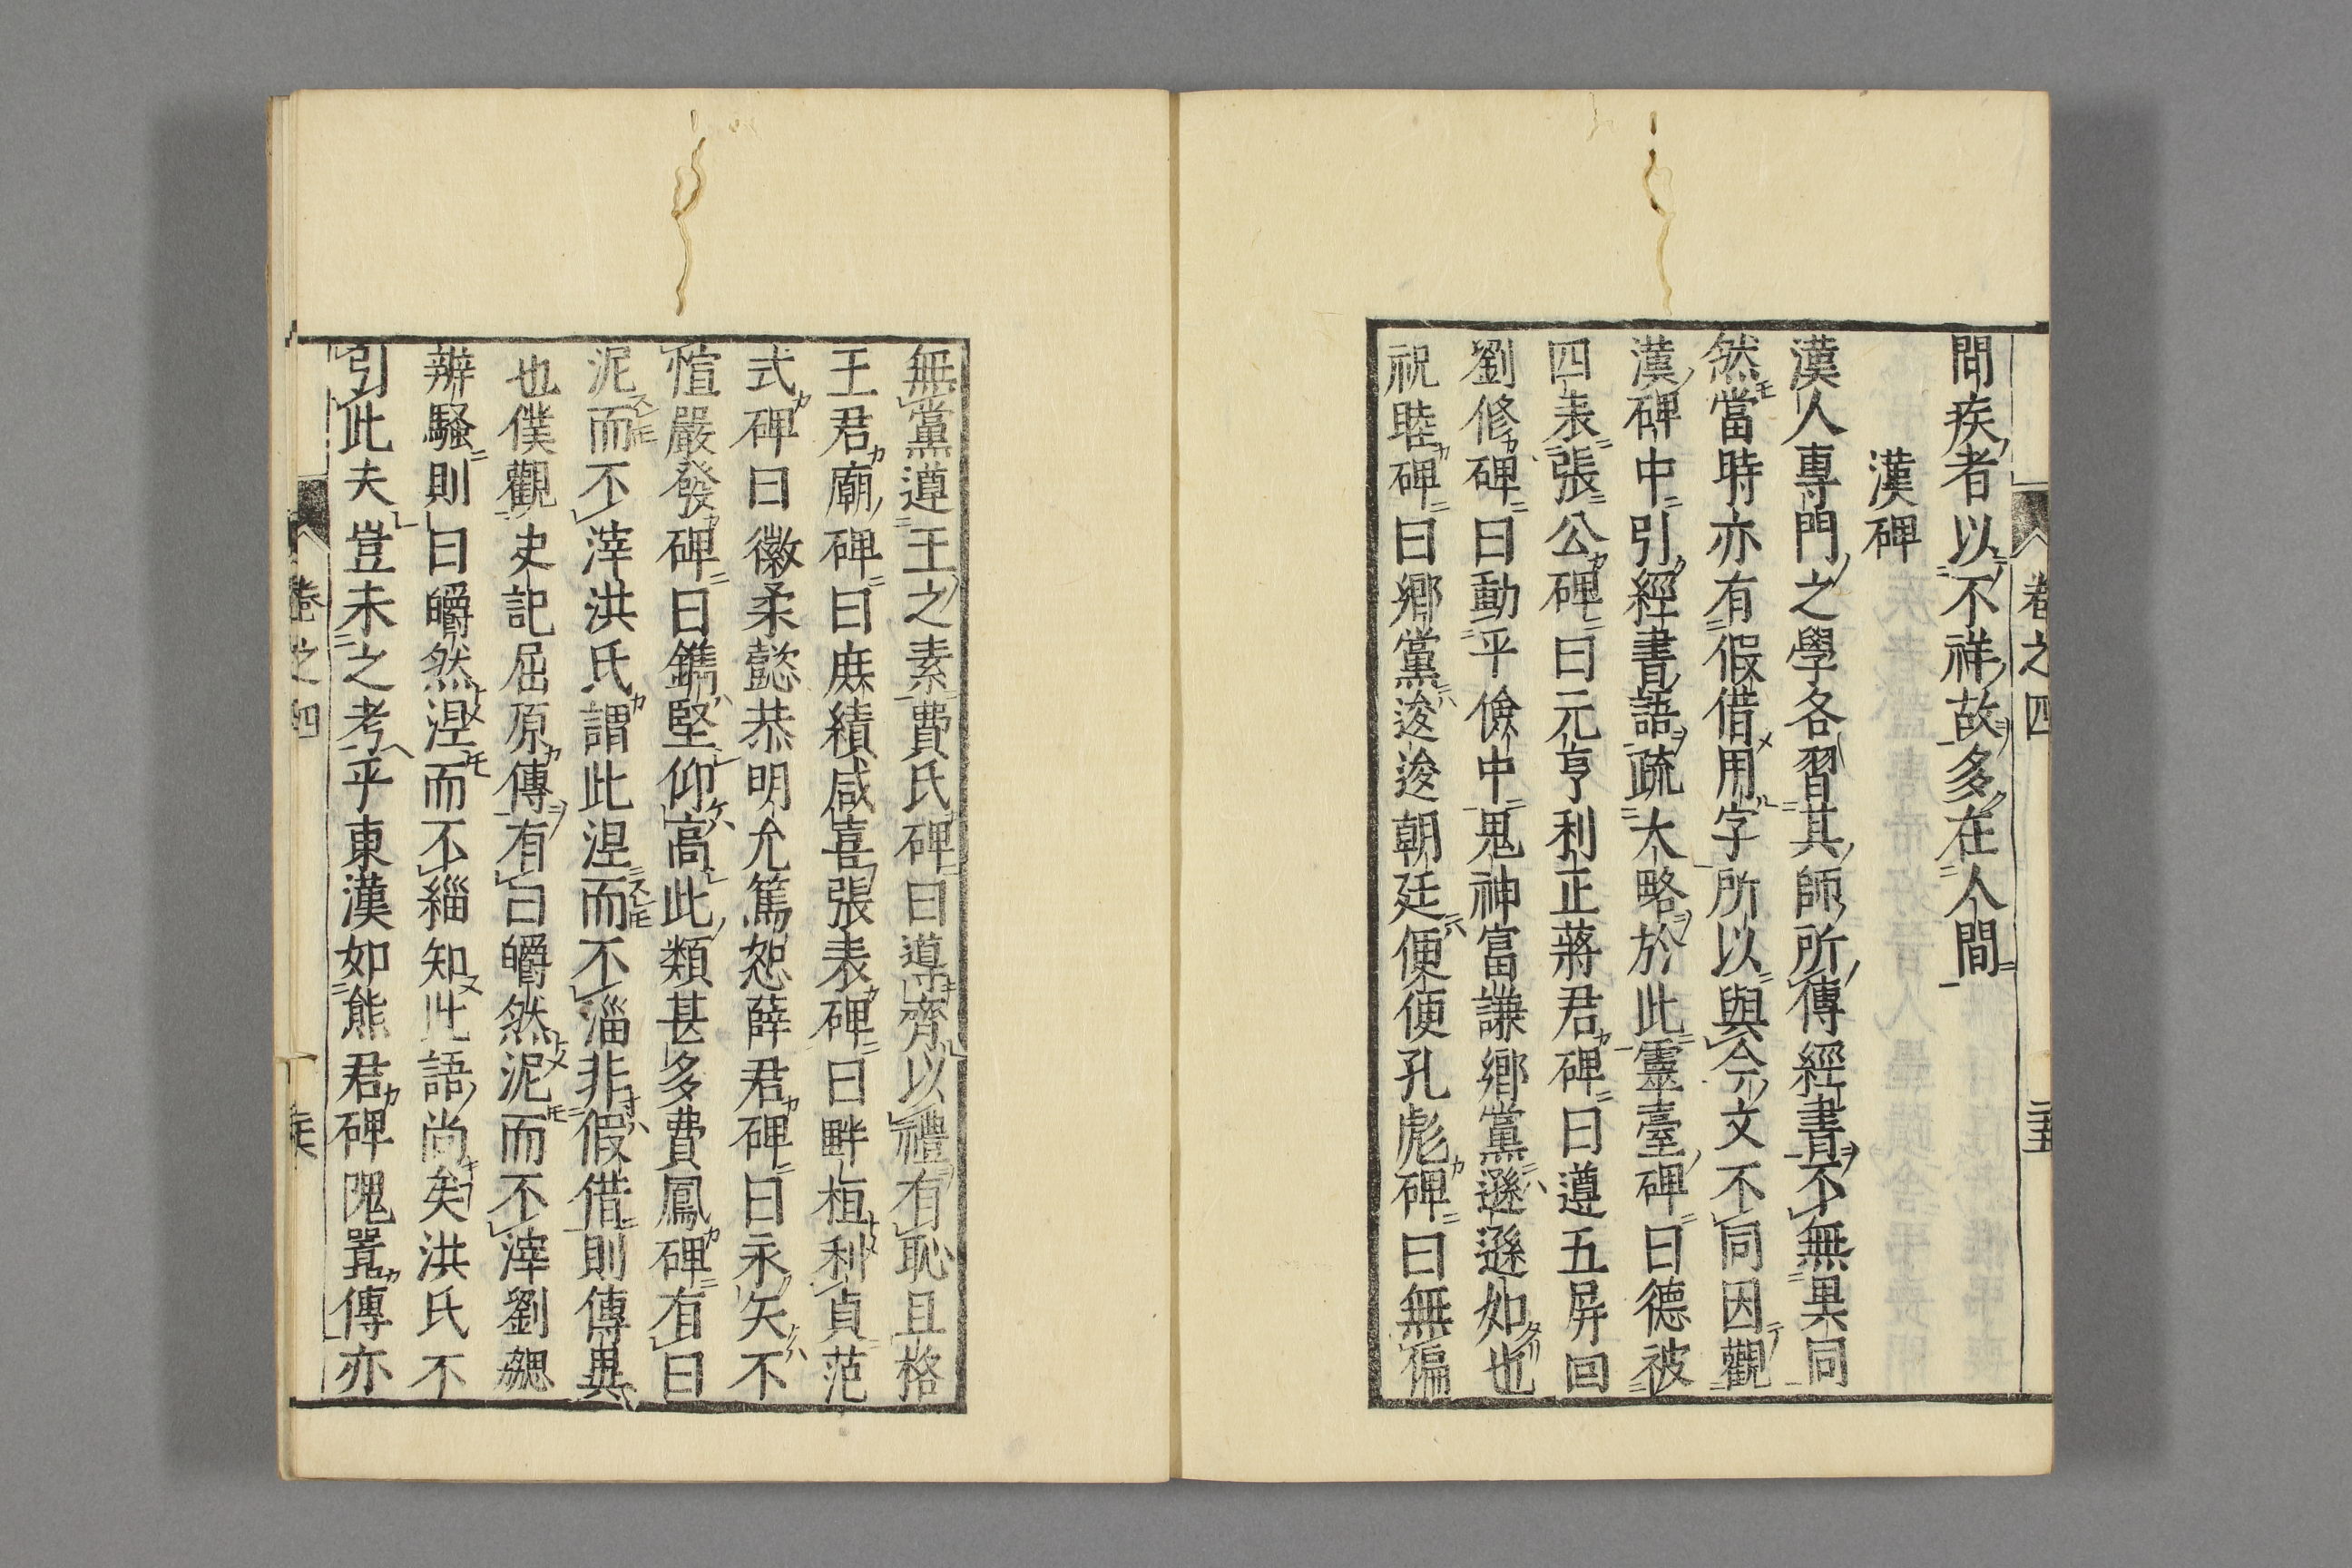 卷之四
二十五
問疾者以不祥故多在人間
漢碑
漢人專門之學各習其師所傳經書不無異同
然當時亦有假借用字所以與今文不同因觀
漢碑中引經書語疏大略於此靈臺碑曰德被
四表張公碑曰元亨利正蔣君碑曰遵五屏四
劉修碑曰動乎儉中鬼神富謙鄉黨遜遜如也
祝睦碑曰鄉黨逡逡朝廷便便孔彪碑曰無偏
無黨遵王之素費氏碑曰導齊以禮有恥且格
王君廟碑曰庶績咸喜張表碑曰畔桓利貞范
式碑曰徽柔懿恭明允篤恕薛君碑曰永矢不
愃嚴發碑曰鐫堅仰高此類甚多費鳳碑有曰
泥而不滓洪氏謂此涅而不淄非假借則傳異
也僕觀史記屈原傳有曰皭然泥而不滓劉勰
辨騷則曰皭然涅而不緇知此語尚矣洪氏不
引此夫豈未之考乎東漢如熊君碑隗囂傳亦
卷之四